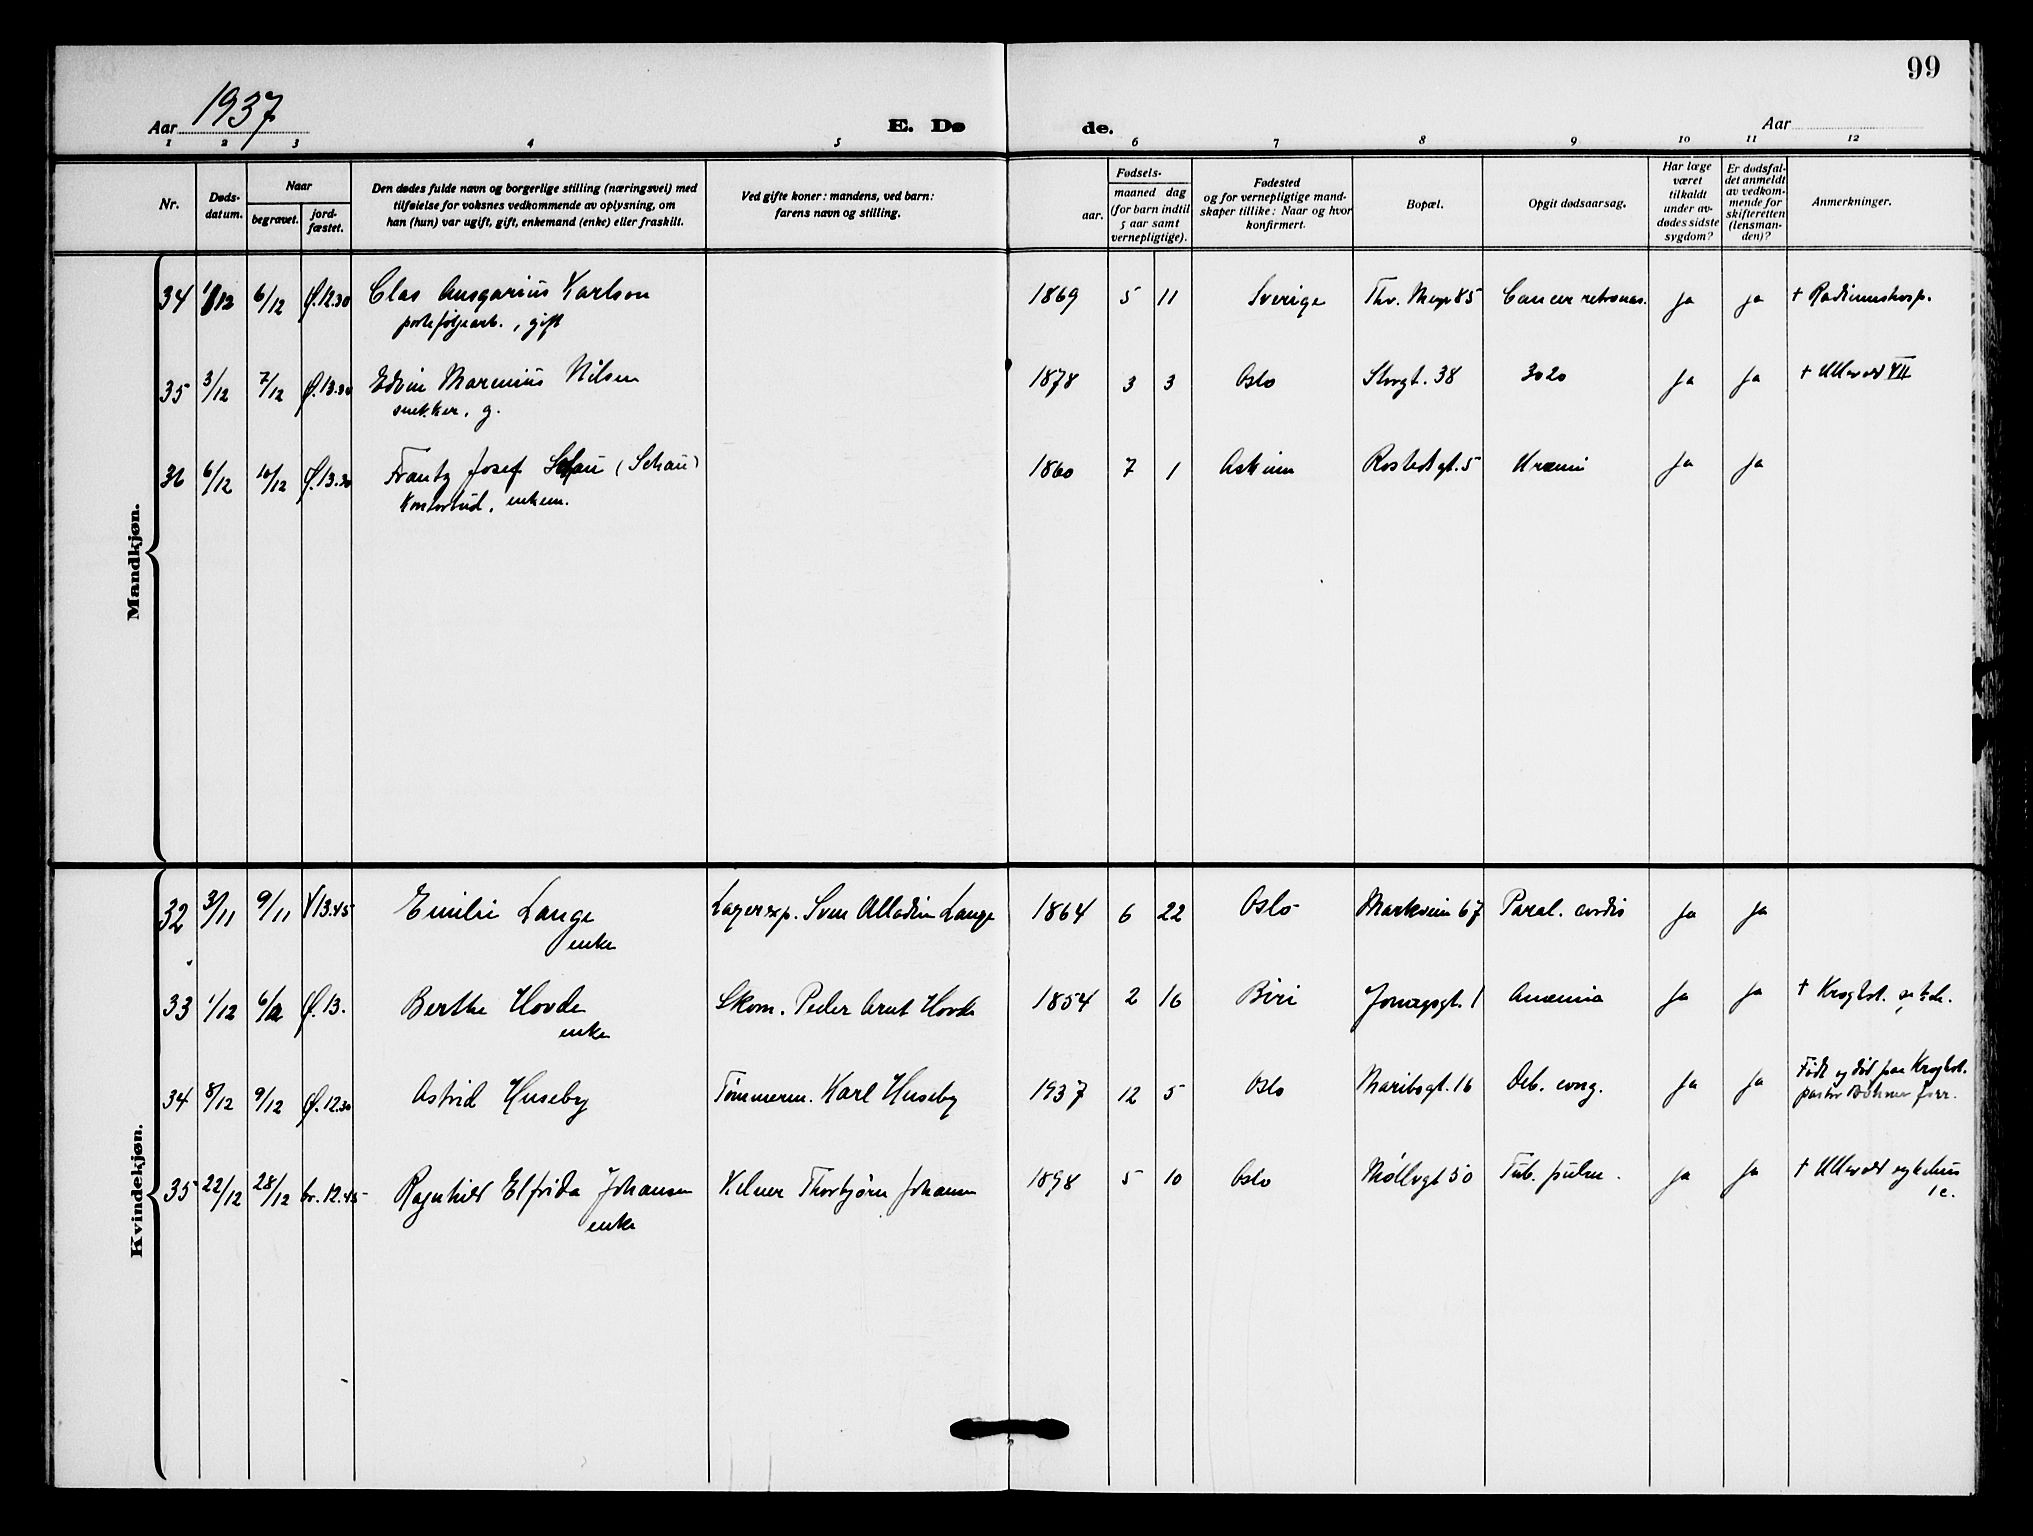 99
Aar 1937
E. Dø
de.
Aar
1 2 3 4 5 6 7 8 9 10 11 12
Nr.
Døds-
datum.
Naar
begravet.
jord-
fæstet.
Den dødes fulde navn og borgerlige stilling (næringsvei) med
tilføielse for voksnes vedkommende av oplysning, om
han (hun) var ugift, gift, enkemand (enke) eller fraskilt.
Ved gifte koner: mandens, ved barn:
farens navn og stilling.
Fødsels-
aar.
maaned dag
(for barn indtil
5 aar samt
vernepligtige).
Fødested
og for vernepligtige mand-
skaper tillike: Naar og hvor
konfirmert.
Bopæl.
Opgit dødsaarsag.
Har læge
været
tilkaldt
under av-
dødes sidste
sygdom?
Er dødsfal-
det anmeldt
av vedkom-
mende for
skifteretten
(lensman-
den)?
Anmerkninger.
Mandkjøn.
34 1/12 6/12 Ø.12.30 Clas Ansgarius Karlson 1869 5 11 Sverige Thv. Meyer 85 Cancer retronas. ja ja + Radiumshosp.
porteføljearb., gift
35 3/12 7/12 Ø.13.30 Edvin Marenius Nilsen 1878 3 3 Oslo Storgt. 38 3020 ja ja + Ullevål VII
snekker, g.
36 6/12 10/12 Ø.13.30 Frantz Josef Schau (Schau) 1860 7 1 Askim Rostedsgt. 5 Uræmi ja ja
Kontorbud, enkem.
Kvindekjøn.
32 3/11 9/11 V 13.45 Emilie Lange Lagerexp. Sven Alladin Lange 1864 6 22 Oslo Markveien 67 Paral. cordis ja ja
enke
33 1/12 6/12 Ø.13. Berthe Hovde Skom. Peder Arnt Hovde 1854 2 16 Biri Jonægsgt. 1 Anæmia ja ja + Krogst.
enke
34 8/12 9/12 Ø.12.30 Astrid Huseby Tømmerm. Karl Huseby 1937 12 5 Oslo Maribogt. 16 Deb. cong. ja ja Født og død paa Krogst.
pastor Böhmer forr.
35 22/12 28/12 kr.12.45 Ragnhild Elfrida Johansen Kelner Thorbjørn Johansen 1898 5 10 Oslo Møllergt 50 Tub. pulm. ja ja + Ullevål sykehus
enke